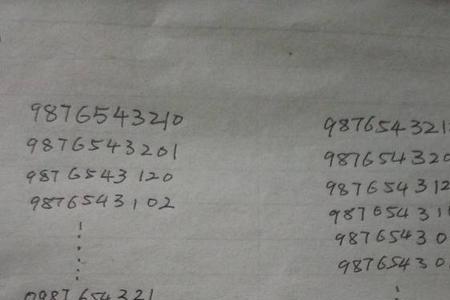 9876543210
9876543201
9876543120
9876543102
0987654321
987654321
987654320
987654312
98765431
98765430
98765430